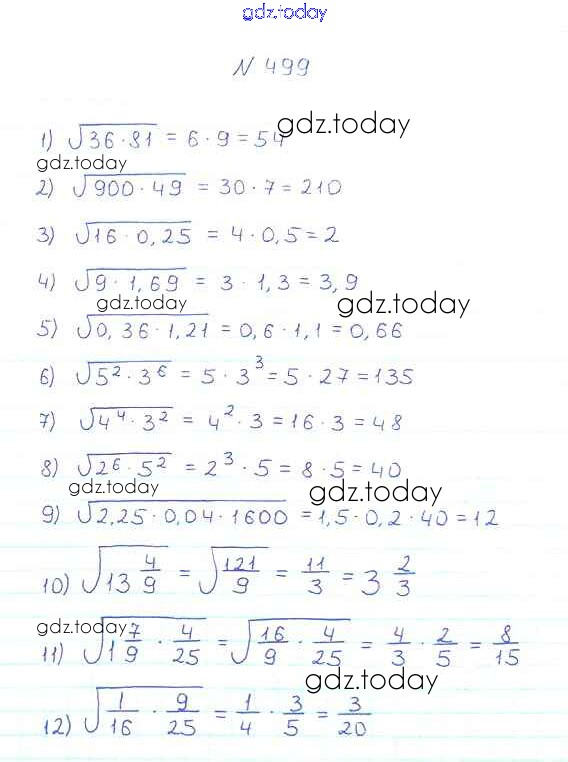 gdz.today
N 499
1) √36·81 = 6·9 = 54 gdz.today
gdz.today
2) √900·49 = 30·7 = 210
3) √16·0,25 = 4·0,5 = 2
4) √9·1,69 = 3·1,3 = 3,9
gdz.today gdz.today
5) √0,36·1,21 = 0,6·1,1 = 0,66
6) √5²·3⁶ = 5·3³ = 5·27 = 135
7) √4⁴·3² = 4²·3 = 16·3 = 48
8) √2⁶·5² = 2³·5 = 8·5 = 40
gdz.today gdz.today
9) √2,25·0,04·1600 = 1,5·0,2·40 = 12
10) √13 4/9 = √121/9 = 11/3 = 3 2/3
gdz.today
11) √1 7/9 · 4/25 = √16/9 · 4/25 = 4/3 · 2/5 = 8/15
gdz.today
12) √1/16 · 9/25 = 1/4 · 3/5 = 3/20